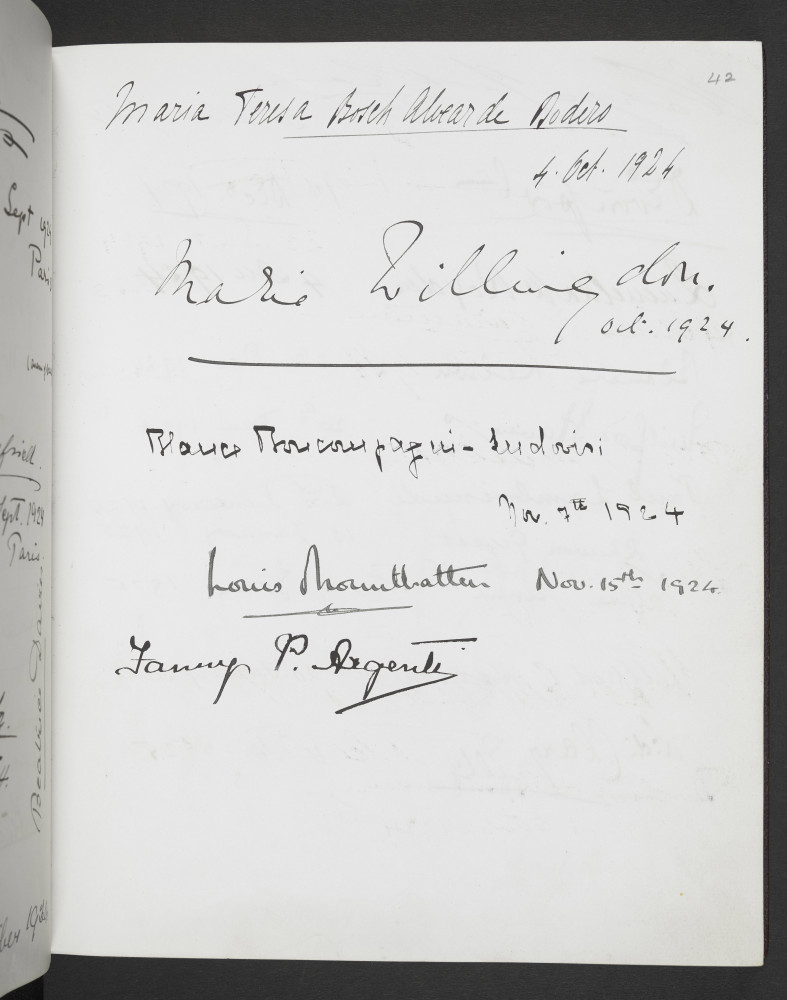 42
Maria Teresa Bosch Alvear de Bodero
4. Oct. 1924
Marie Willingdon.
Oct. 1924.
Blanca Boncompagni-Ludovisi
Nov. 7th 1924
Louis Mountbatten Nov. 15th 1924.
Fanny P. Argenti
Sept 1924
Paris
Sept. 1924
Paris.